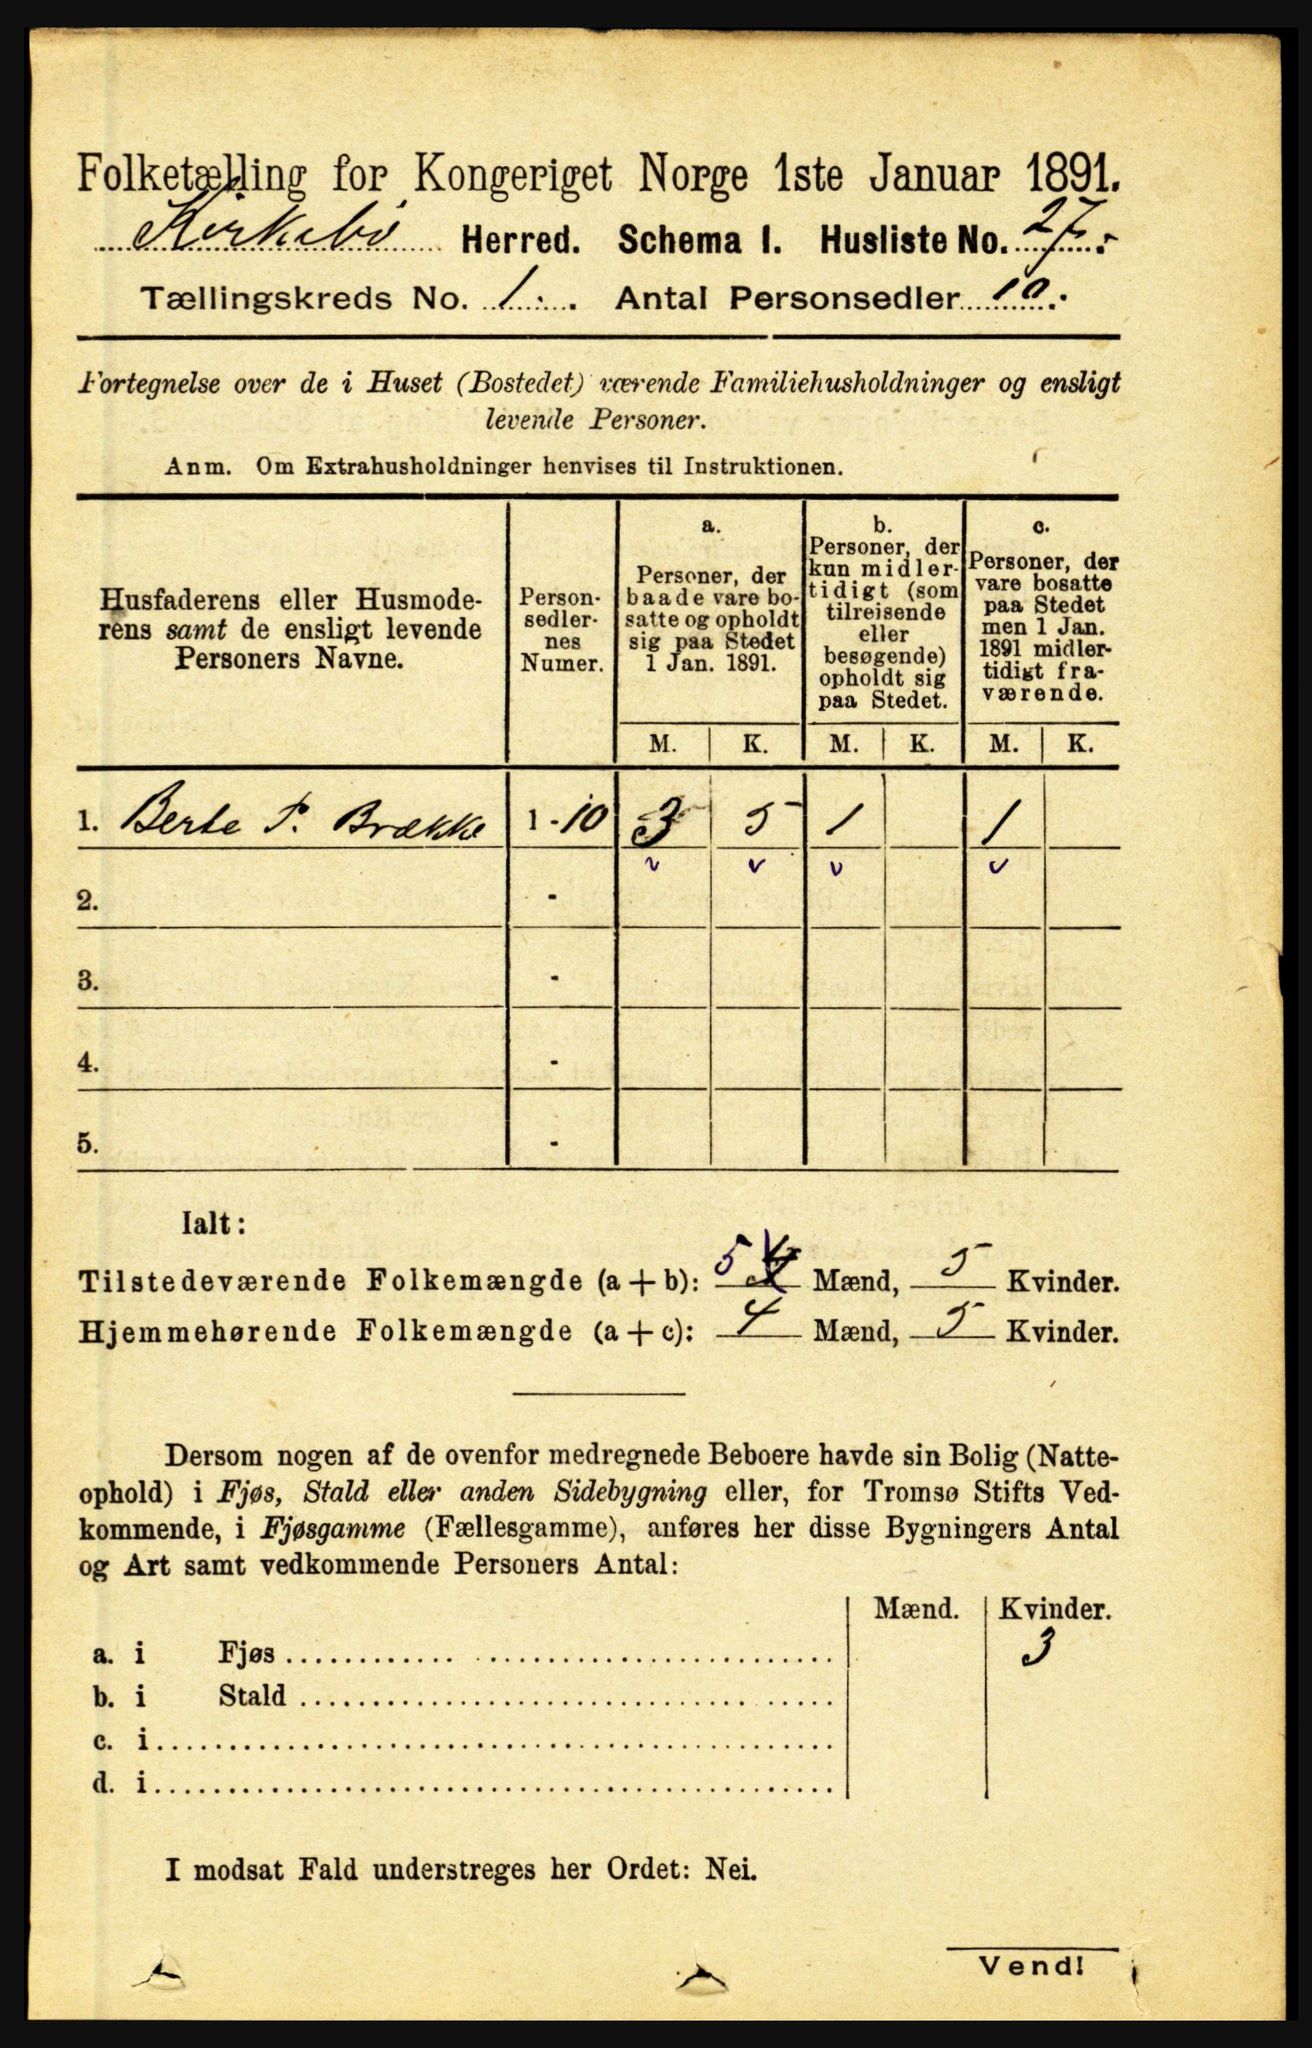 Folketælling for Kongeriget Norge 1ste Januar 1891.
Kirkebø Herred. Schema I. Husliste No. 27.
Tællingskreds No. 1. Antal Personsedler 10.
Fortegnelse over de i Huset (Bostedet) værende Familiehusholdninger og ensligt
levende Personer.
Anm. Om Extrahusholdninger henvises til Instruktionen.
Husfaderens eller Husmode-
rens samt de ensligt levende
Personers Navne.
Person-
sedler-
nes
Numer.
a.
Personer, der
baade vare bo-
satte og opholdt
sig paa Stedet
1 Jan. 1891.
b.
Personer, der
kun midler-
tidigt (som
tilreisende
eller
besøgende)
opholdt sig
paa Stedet.
c.
Personer, der
vare bosatte
paa Stedet
men 1 Jan.
1891 midler-
tidigt fra-
værende.
M. K. M. K. M. K.
1. Berte P. Brække 1 - 10 3 5 1 1
2. -
3. -
4. -
5. -
Ialt:
Tilstedeværende Folkemængde (a + b): 5 Mænd, 5 Kvinder.
Hjemmehørende Folkemængde (a + c): 4 Mænd, 5 Kvinder.
Dersom nogen af de ovenfor medregnede Beboere havde sin Bolig (Natte-
ophold) i Fjøs, Stald eller anden Sidebygning eller, for Tromsø Stifts Ved-
kommende, i Fjøsgamme (Fællesgamme), anføres her disse Bygningers Antal
og Art samt vedkommende Personers Antal:
Mænd. Kvinder.
a. i Fjøs 3
b. i Stald
c. i
d. i
I modsat Fald understreges her Ordet: Nei.
Vend!